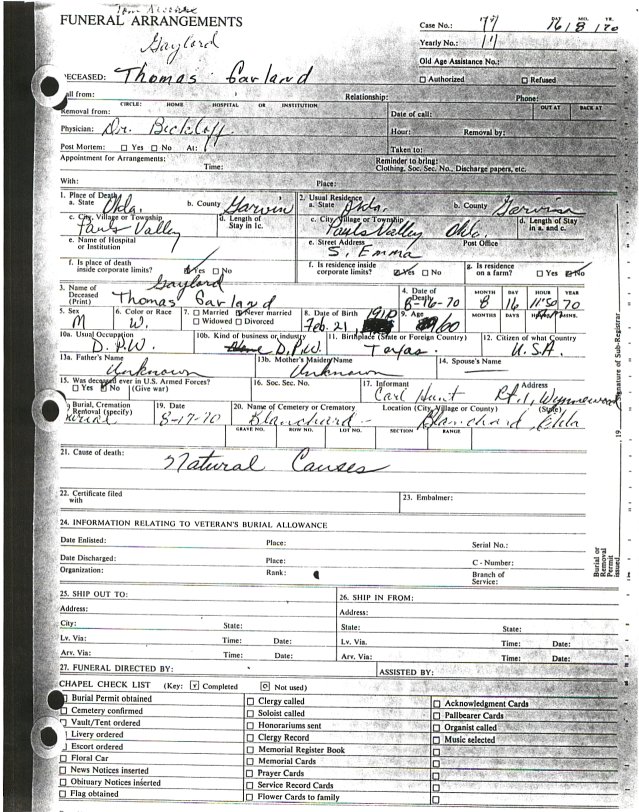 FUNERAL ARRANGEMENTS
Case No.: 77 DAY MO. YR. 16 8 70
Gaylord
Yearly No.: 11
Old Age Assistance No.:
DECEASED: Thomas Garland
Authorized Refused
Call from: Relationship: Phone:
CIRCLE: HOME HOSPITAL OR INSTITUTION OUT AT BACK AT
Removal from: Date of call:
Physician: Dr.
Hour: Removal by:
Post Mortem: Yes No At:
Taken to:
Appointment for Arrangements:
Time:
Reminder to bring:
Clothing, Soc. Sec. No., Discharge papers, etc.
With: Place:
1. Place of Death
a. State Okla. b. County Garvin
2. Usual Residence
a. State Okla. b. County Garvin
c. City, Village or Township Pauls Valley
d. Length of Stay in 1c.
c. City Village or Township Pauls Valley Okla.
d. Length of Stay in a. and c.
e. Name of Hospital or Institution
e. Street Address S. Emma Post Office
f. Is place of death inside corporate limits? Yes No
f. Is residence inside corporate limits? Yes No
g. Is residence on a farm? Yes No
Gaylord
3. Name of Deceased (Print) Thomas Garland
4. Date of Death 8-16-70
MONTH DAY HOUR YEAR
8 16 11:50 70
5. Sex M
6. Color or Race W.
7. Married Never married
Widowed Divorced
8. Date of Birth Feb. 21, 1910
9. Age 60
MONTHS DAYS HOURS MINS.
10a. Usual Occupation D.P.W.
10b. Kind of business or industry D.P.W.
11. Birthplace (State or Foreign Country) Texas
12. Citizen of what Country U.S.A.
13a. Father's Name Unknown
13b. Mother's Maiden Name Unknown
14. Spouse's Name
15. Was deceased ever in U.S. Armed Forces?
Yes No (Give war)
16. Soc. Sec. No.
17. Informant Carl Hunt Address Rt. 1, Wynnewood
Burial, Cremation Removal (specify) Burial
19. Date 8-17-70
20. Name of Cemetery or Crematory Blanchard
Location (City, Village or County) (State) Blanchard, Okla
GRAVE NO. ROW NO. LOT NO. SECTION RANGE
21. Cause of death: Natural Causes
22. Certificate filed with
23. Embalmer:
24. INFORMATION RELATING TO VETERAN'S BURIAL ALLOWANCE
Date Enlisted: Place: Serial No.:
Date Discharged: Place: C - Number:
Organization: Rank: Branch of Service:
25. SHIP OUT TO: 26. SHIP IN FROM:
Address: Address:
City: State: State: State:
Lv. Via: Time: Date: Lv. Via. Time: Date:
Arv. Via: Time: Date: Arv. Via. Time: Date:
27. FUNERAL DIRECTED BY: ASSISTED BY:
CHAPEL CHECK LIST (Key: Completed Not used)
Burial Permit obtained Clergy called Acknowledgment Cards
Cemetery confirmed Soloist called Pallbearer Cards
Vault/Tent ordered Honorariums sent Organist called
Livery ordered Clergy Record Music selected
Escort ordered Memorial Register Book
Floral Car Memorial Cards
News Notices inserted Prayer Cards
Obituary Notices inserted Service Record Cards
Flag obtained Flower Cards to family
Signature of Sub-Registrar
19
Burial or Removal Permit issued